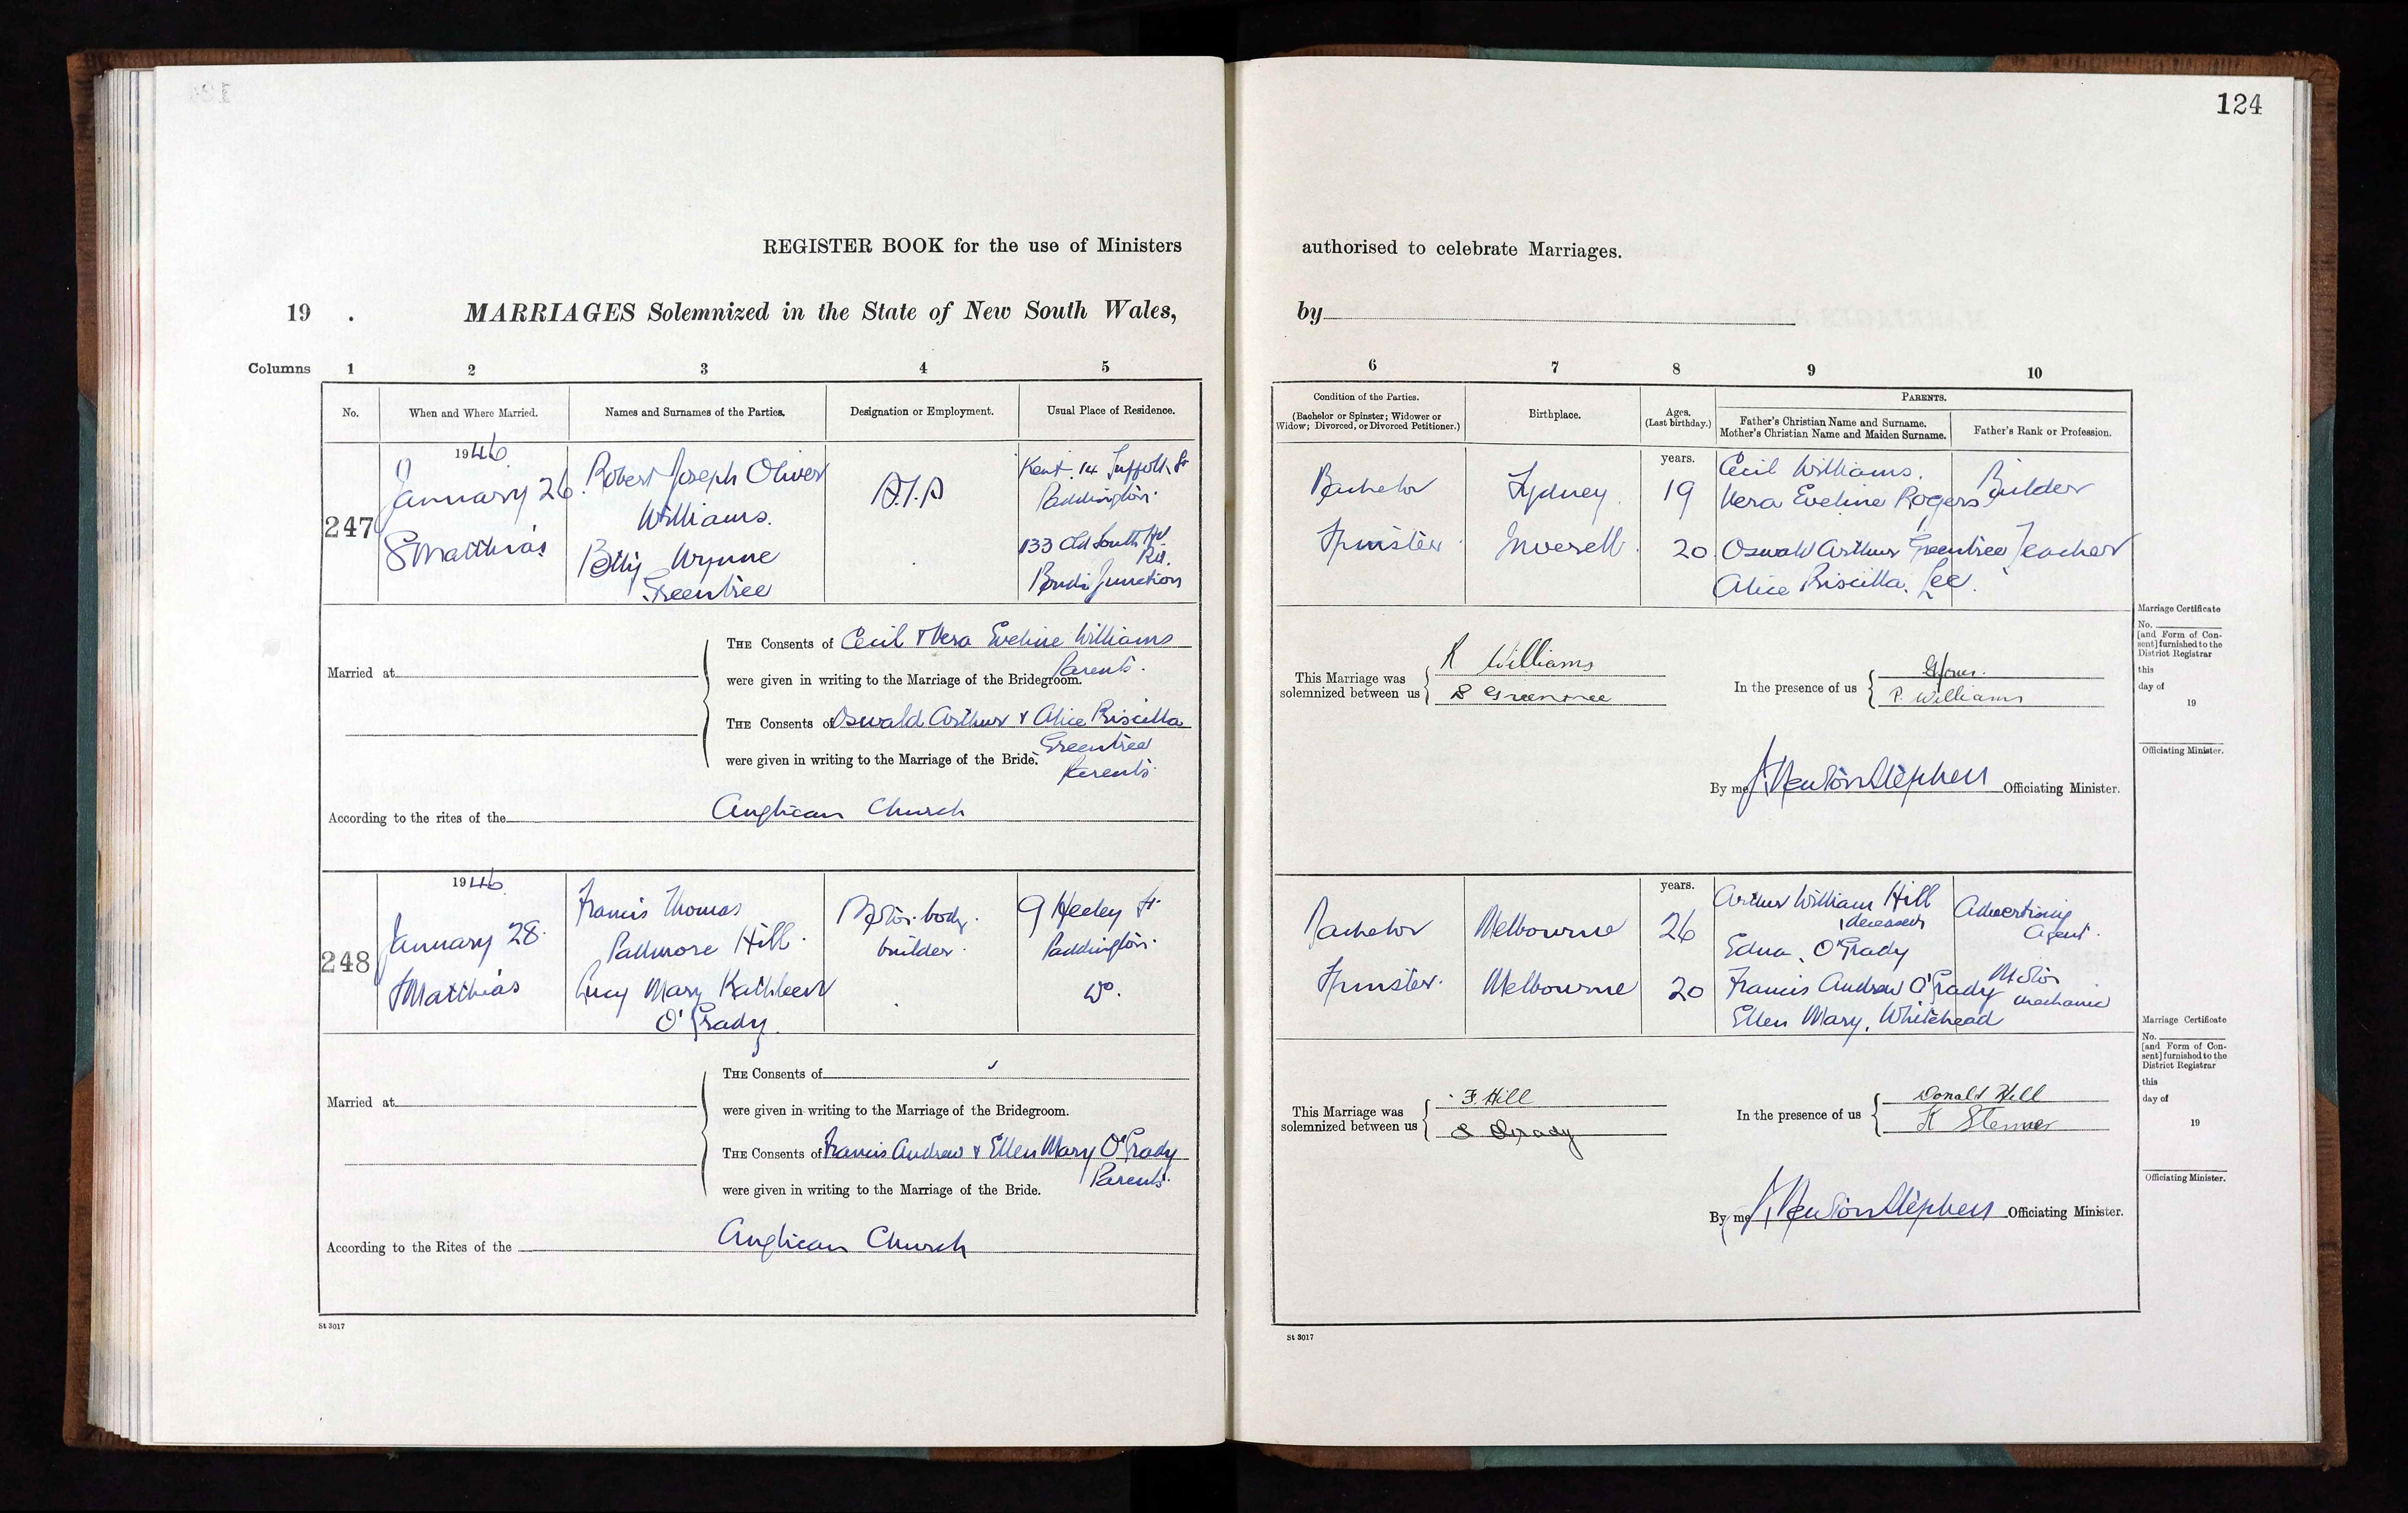 124
REGISTER BOOK for the use of Ministers
authorised to celebrate Marriages.
19 . MARRIAGES Solemnized in the State of New South Wales,
by
Columns 1 2 3 4 5
6 7 8 9 10
No. When and Where Married. Names and Surnames of the Parties. Designation or Employment. Usual Place of Residence.
Condition of the Parties.
(Bachelor or Spinster; Widower or
Widow; Divorced, or Divorced Petitioner.)
Birthplace.
Ages.
(Last birthday.)
PARENTS.
Father's Christian Name and Surname.
Mother's Christian Name and Maiden Surname.
Father's Rank or Profession.
247
1946
January 26.
S Matthias
Robert Joseph Oliver
Williams.
Betty Wynne
Greentree
Kent. 14 Suffolk St
Paddington.
133 Old South Hd.
Rd.
Bondi Junction
Bachelor Sydney
years.
19
Cecil Williams.
Vera Eveline Rogers
Builder
Spinster. Inverell. 20
Oswald Arthur Greentree Teacher
Alice Priscilla. Lee.
Married at
THE Consents of Cecil & Vera Eveline Williams
Parents.
were given in writing to the Marriage of the Bridegroom.
THE Consents of Oswald Arthur & Alice Priscilla
Greentree
were given in writing to the Marriage of the Bride.
Parents.
According to the rites of the Anglican Church
This Marriage was
solemnized between us
R Williams
B Greentree
In the presence of us
P. Williams
By me Newton Stephens Officiating Minister.
Marriage Certificate
No.
[and Form of Con-
sent] furnished to the
District Registrar
this
day of
19
Officiating Minister.
248
1946
January 28.
S Matthias
Francis Thomas
Hill.
Lucy Mary Kathleen
O'Grady.
Motor body
builder.
9 Heeley St.
Paddington.
Do.
Bachelor Melbourne
years.
26
Arthur William Hill
deceased
Edna, O'Grady
Advertising
Agent.
Spinster. Melbourne 20
Francis Andrew O'Grady
Ellen Mary, Whitehead
Motor
mechanic
Married at
THE Consents of
were given in writing to the Marriage of the Bridegroom.
THE Consents of Francis Andrew & Ellen Mary O'Grady
Parents.
were given in writing to the Marriage of the Bride.
According to the Rites of the Anglican Church
This Marriage was
solemnized between us
F. Hill
L Ogrady
In the presence of us
Donald Hill
By me Newton Stephens Officiating Minister.
Marriage Certificate
No.
[and Form of Con-
sent] furnished to the
District Registrar
this
day of
19
Officiating Minister.
St 3017
St 3017